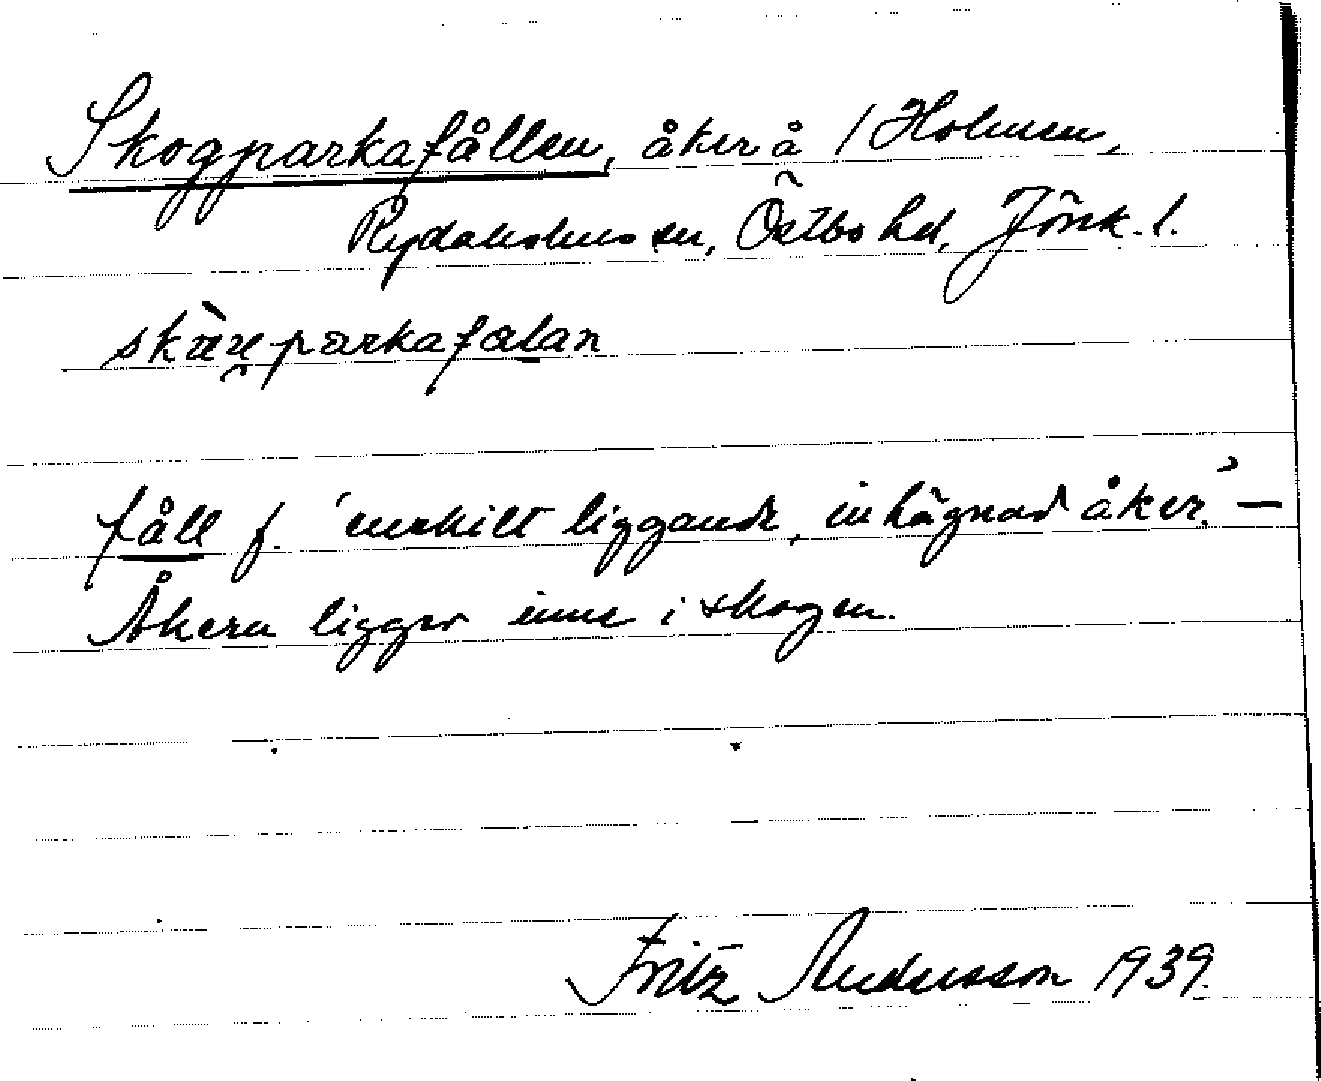 Skogparkafållen, åker å /Holmen,
Rydaholms sn, Östbo hd, Jönk. l.
parkafalan
fåll f. 'enskilt liggande, inhägnad åker.' —
Åkern ligger inne i skogen.
Fritz Andersson 1939.